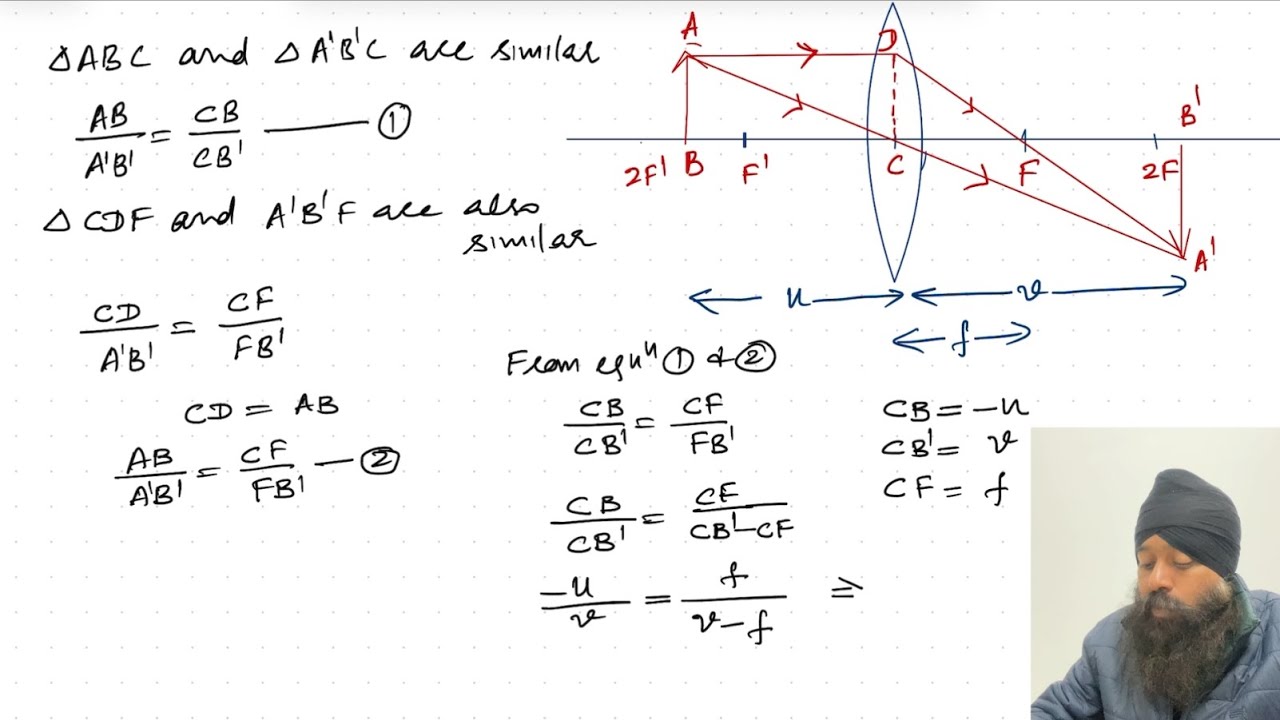 △ABC and △A'B'C are similar
AB/A'B' = CB/CB' —— ①
△CDF and A'B'F are also
similar
CD/A'B' = CF/FB'
CD = AB
AB/A'B' = CF/FB' — ②
A
D
B'
2F'
B
F'
C
F
2F
A'
u
v
f
From equⁿ ① & ②
CB/CB' = CF/FB'
CB/CB' = CF/CB'-CF
-u/v = f/v-f ⇒
CB = -u
CB' = v
CF = f